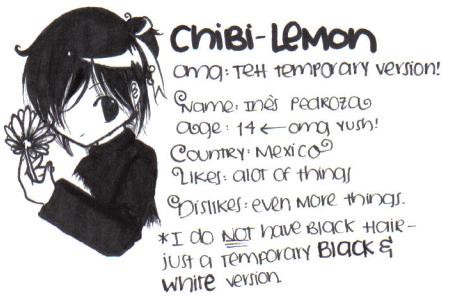 CHiBi-Lemon
omg: TEH temporary version!
Name: Inès Pedroza
age: 14 ← omg yush!
Country: Mexico
Likes: alot of things
Dislikes: even more things.
*I do NOT have Black Hair-
just a temporary Black &
White version.